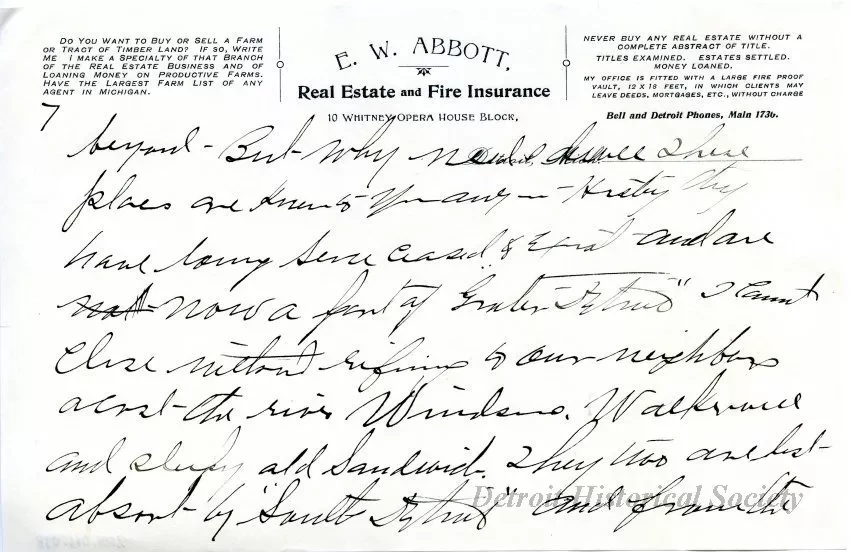 DO YOU WANT TO BUY OR SELL A FARM
OR TRACT OF TIMBER LAND? IF SO, WRITE
ME I MAKE A SPECIALTY OF THAT BRANCH
OF THE REAL ESTATE BUSINESS AND OF
LOANING MONEY ON PRODUCTIVE FARMS.
HAVE THE LARGEST FARM LIST OF ANY
AGENT IN MICHIGAN.
E. W. ABBOTT,
Real Estate and Fire Insurance
10 WHITNEY OPERA HOUSE BLOCK,
NEVER BUY ANY REAL ESTATE WITHOUT A
COMPLETE ABSTRACT OF TITLE.
TITLES EXAMINED. ESTATES SETTLED.
MONEY LOANED.
MY OFFICE IS FITTED WITH A LARGE FIRE PROOF
VAULT, 12 X 18 FEET, IN WHICH CLIENTS MAY
LEAVE DEEDS, MORTGAGES, ETC., WITHOUT CHARGE
Bell and Detroit Phones, Main 1736.
7
beyond - But why need these
places are known to you any - they
have long since ceased to exist and are
now a part of "Greater Detroit" I cannot
close without refering to our neighbors
acrost the river Windsor. Walkerville
and sleepy old Sandwich. They too are
absorb by "South Detroit" and from the
Detroit Historical Society